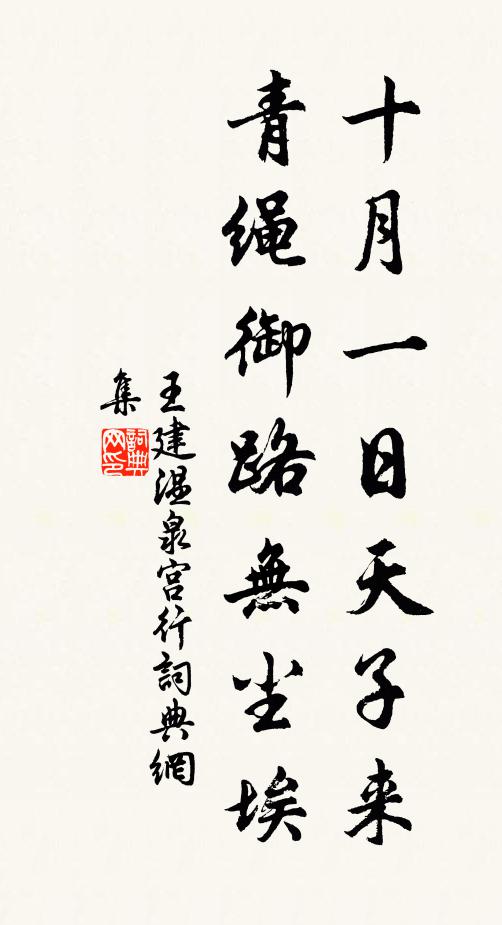 十月一日天子来
青绳御路無尘埃
王建温泉宫行詞典網
集
詞典网印